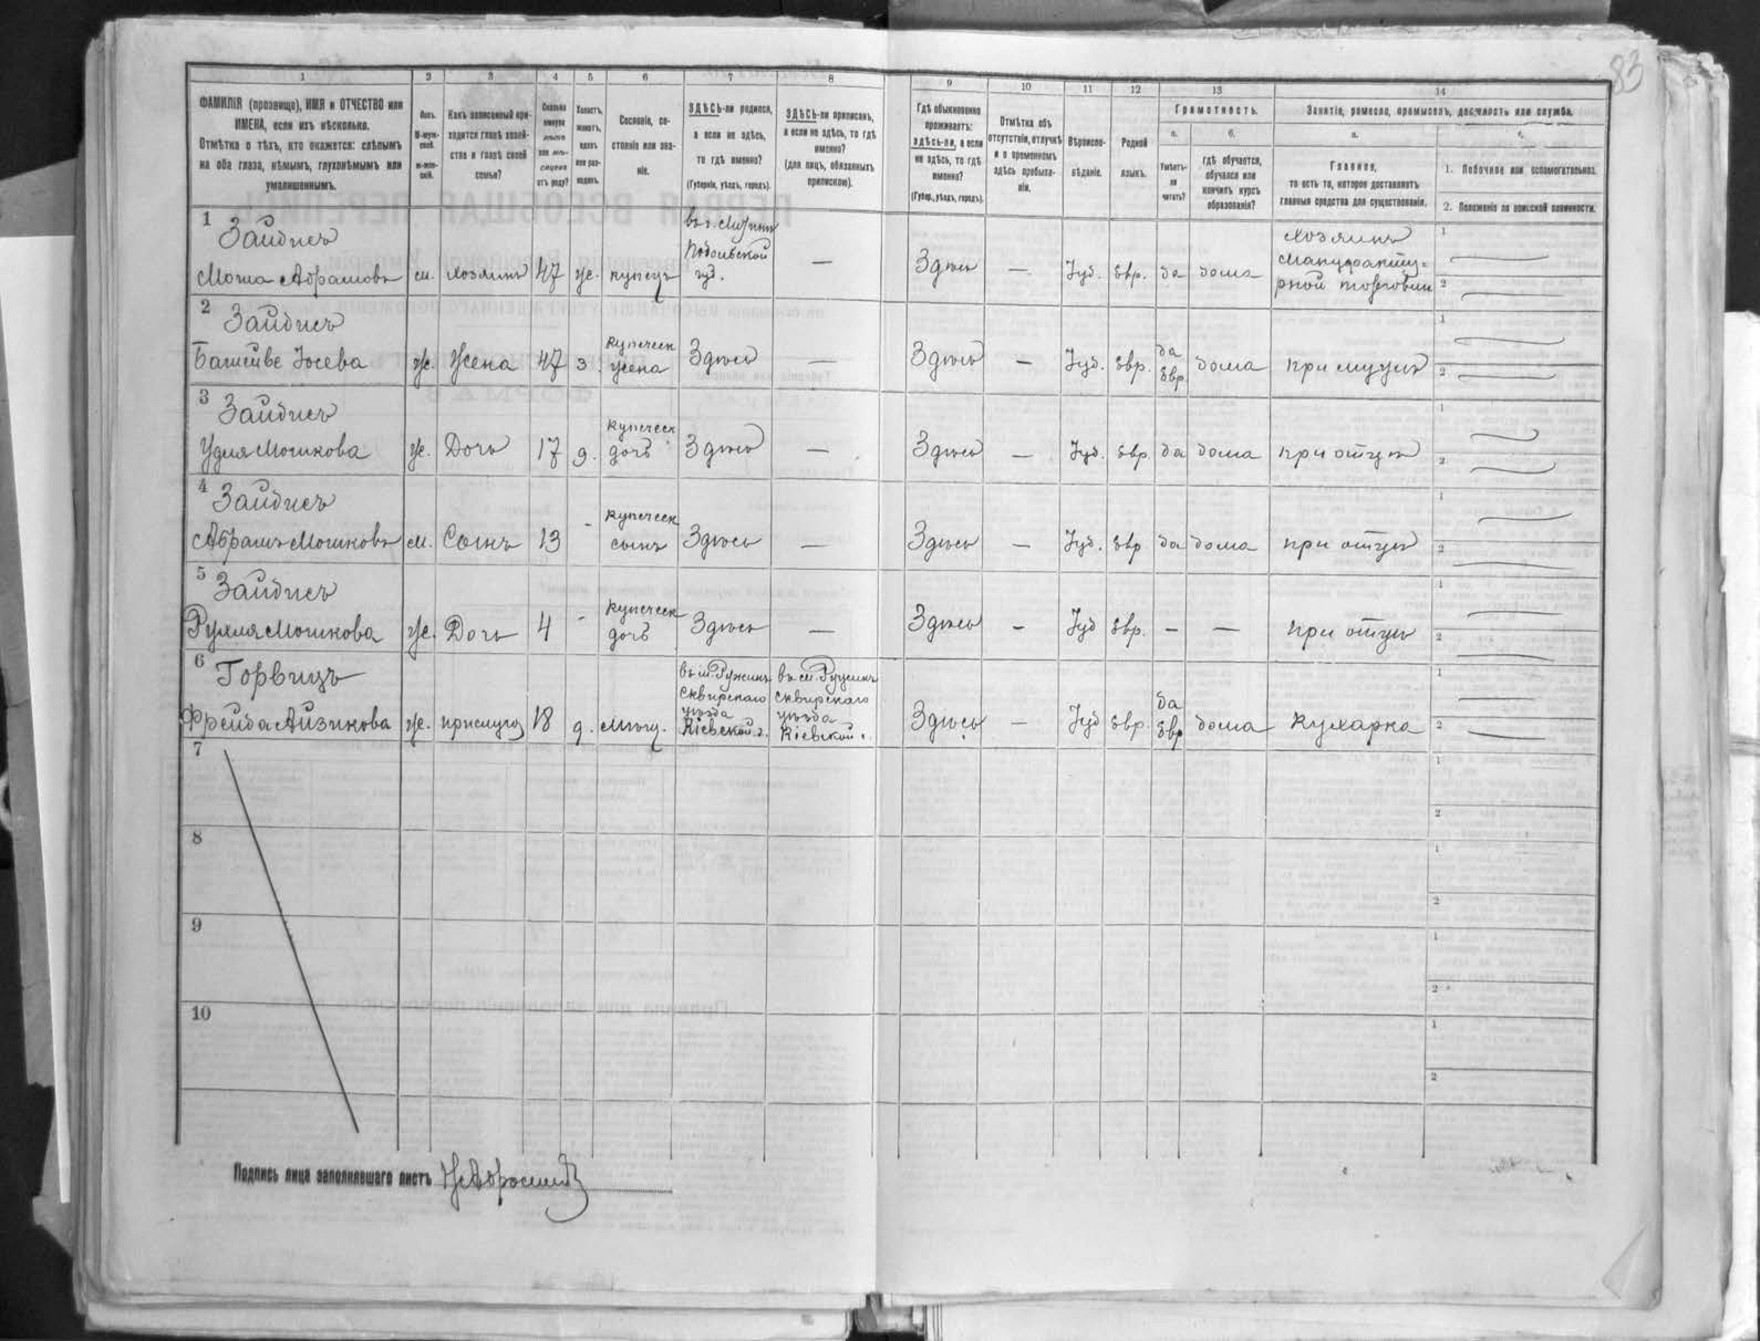 83
1 2 3 4 5 6 7 8 9 10 11 12 13 14
ФАМИЛІЯ (прозвище), ИМЯ и ОТЧЕСТВО или
ИМЕНА, если ихъ нѣсколько.
Отмѣтка о тѣхъ, кто окажется: слѣпымъ
на оба глаза, нѣмымъ, глухонѣмымъ или
умалишеннымъ.
Полъ.
М-муж-
ской.
ж-жен-
скій.
Какъ записанный при-
ходится главѣ хозяй-
ства и главѣ своей
семьи?
Сколько
минуло
лѣтъ
или мѣ-
сяцевъ
отъ роду?
Холостъ,
женатъ,
вдовъ
или раз-
веденъ.
Сословіе, со-
стояніе или зва-
ніе.
ЗДѢСЬ-ли родился,
а если не здѣсь,
то гдѣ именно?
(Губернія, уѣздъ, городъ).
ЗДѢСЬ-ли приписанъ,
а если не здѣсь, то гдѣ
именно?
(для лицъ, обязанныхъ
припискою).
Гдѣ обыкновенно
проживаетъ:
здѣсь-ли, а если
не здѣсь, то гдѣ
именно?
(Губер., уѣздъ, городъ).
Отмѣтка объ
отсутствіи, отлучкѣ
и о временномъ
здѣсь пребыва-
ніи.
Вѣроиспо-
вѣданіе.
Родной
языкъ.
Грамотность.
а.
Умѣетъ-
ли
читать?
б.
гдѣ обучается,
обучался или
кончилъ курсъ
образованія?
Занятіе, ремесло, промыселъ, должность или служба.
а.
Главное,
то есть то, которое доставляетъ
главныя средства для существованія.
1. Побочное или вспомогательное.
2. Положеніе по воинской повинности.
1 Зайдисъ
Моша Абрамовъ м. хозяинъ 47 ж. купецъ
Подольской
губ. — Здѣсь — Іуд. Евр. да дома
хозяинъ
мануфакту-
рной торговли
1
2
2 Зайдисъ
Басшейве Іосева ж. Жена 47 з. купеческ
жена Здѣсь — Здѣсь — Іуд. Евр. да
Евр дома при мужѣ
1
2
3 Зайдисъ
Удля Мошкова ж. Дочь 17 д. купеческ
дочь Здѣсь — Здѣсь — Іуд. Евр. да дома при отцѣ
1
2
4 Зайдисъ
Абрамъ Мошковъ м. Сынъ 13 - купеческ
сынъ Здѣсь — Здѣсь — Іуд. Евр да дома при отцѣ
1
2
5 Зайдисъ
Рухля Мошкова ж. Дочь 4 - купеческ
дочь Здѣсь — Здѣсь - Іуд Евр. - — при отцѣ
1
2
6 Горвицъ
Фрейда Айзикова ж. прислуга 18 д. мѣщ.
въ м. Ружинѣ
Сквирскаго
уѣзда
Кіевской г.
въ м. Ружинѣ
Сквирскаго
уѣзда
Кіевской г.
Здѣсь — Іуд Евр. да
Евр дома Кухарка
1
2
7
1
2
8
1
2
9
1
2
10
1
2
Подпись лица заполнявшаго листъ